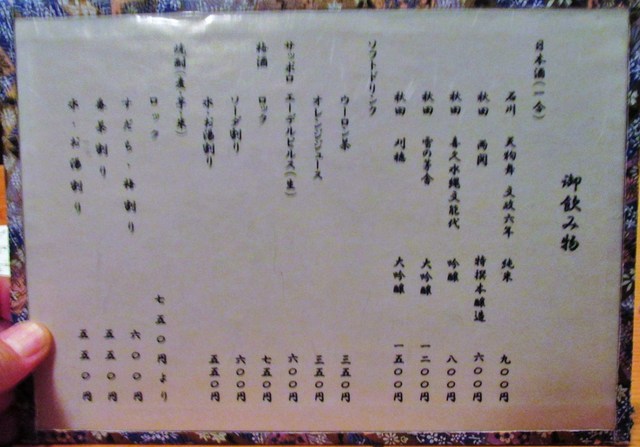 御飲み物
日本酒(一合)
石川 天狗舞 文政六年 純米 九〇〇円
秋田 両関 特撰本醸造 六〇〇円
秋田 喜久水縄文能代 吟醸 八〇〇円
秋田 雪の茅舎 大吟醸 一二〇〇円
秋田 刈穂 大吟醸 一五〇〇円
ソフトドリンク
ウーロン茶 三五〇円
オレンジジュース 三五〇円
サッポロ エーデルピルス(生) 六〇〇円
梅酒 ロック 七五〇円
ソーダ割り 六〇〇円
水・お湯割り 五五〇円
焼酎(麦・芋・米) 七五〇円より
ロック
すだち・梅割り 六〇〇円
番茶割り 五五〇円
水・お湯割り 五五〇円